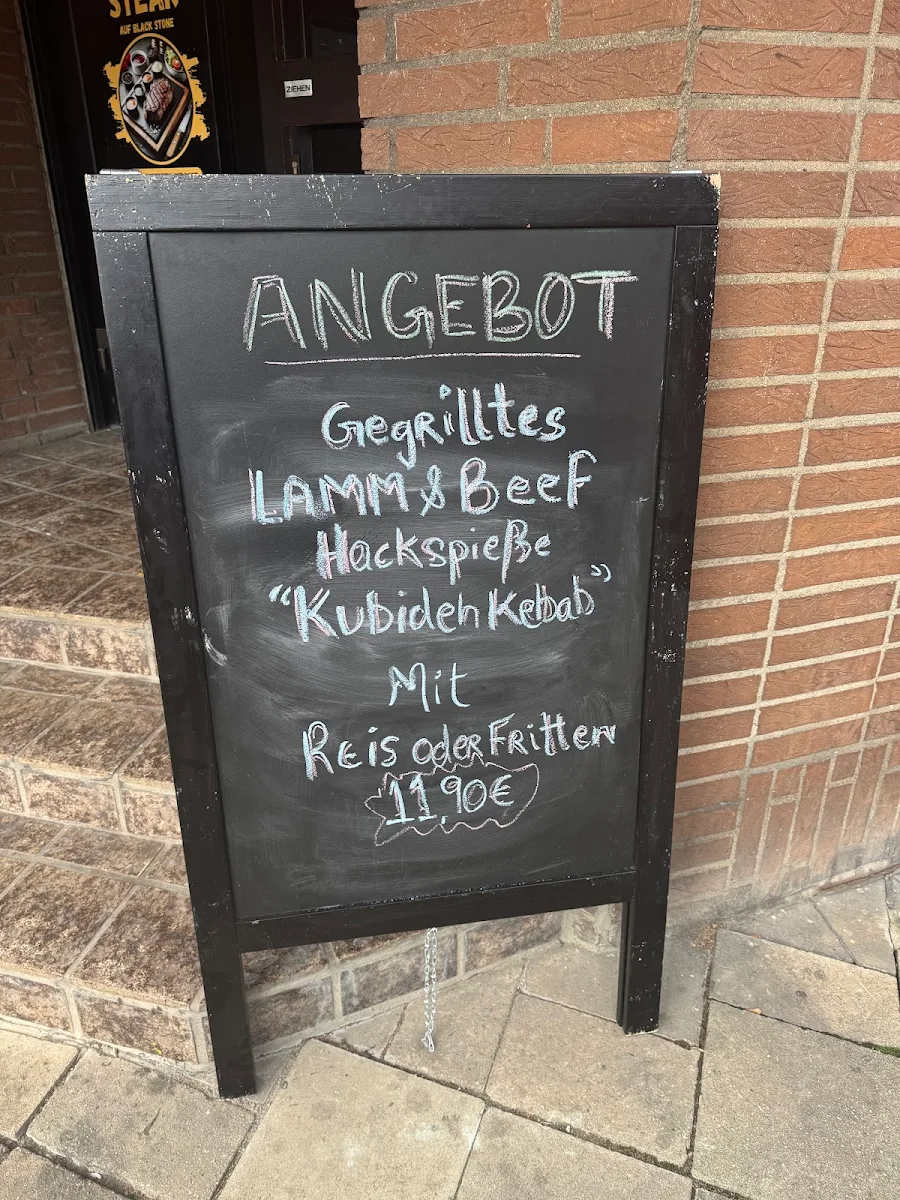 STEAK
AUF BLACK STONE
ZIEHEN
ANGEBOT
Gegrilltes
LAMM & Beef
Hackspieße
"Kubideh Kebab"
Mit
Reis oder Fritten
11,90€